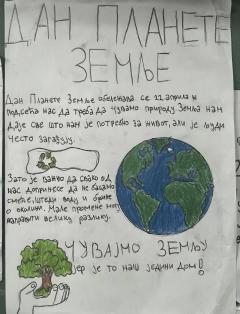 ДАН ПЛАНЕТЕ
ЗЕМЉЕ
Дан Планете Земље обележава се 22. априла и
подсећа нас да треба да чувамо природу. Земља нам
даје све што нам је потребно за живот, али је људи
често загађују.
Зато је важно да свако од
нас допринесе да не бацамо
смеће, штеди воду и брине
о околини. Мале промене могу
направити велику разлику.
ЧУВАЈМО ЗЕМЉУ
јер је то наш једини дом!